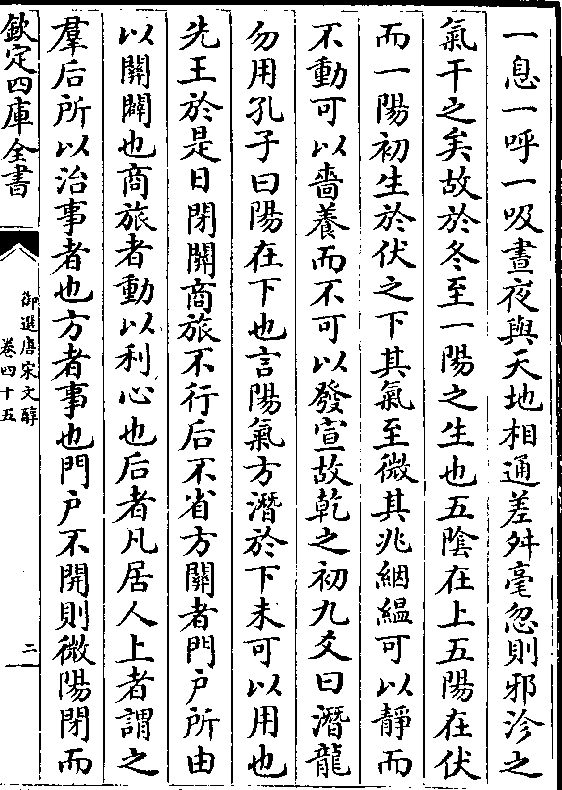 一息一呼一吸晝夜與天地相通差舛毫忽則邪沴之
氣干之矣故於冬至一陽之生也五陰在上五陽在伏
而一陽初生於伏之下其氣至微其兆絪緼可以靜而
不動可以嗇養而不可以發宣故乾之初九爻曰潛龍
勿用孔子曰陽在下也言陽氣方潛於下未可以用也
先王於是日閉關商旅不行后不省方關者門户所由
以關闢也商旅者動以利心也后者凡居人上者謂之
羣后所以治事者也方者事也門户不開則微陽閉而
欽定四庫全書
御選唐宋文醇
卷四十五
二